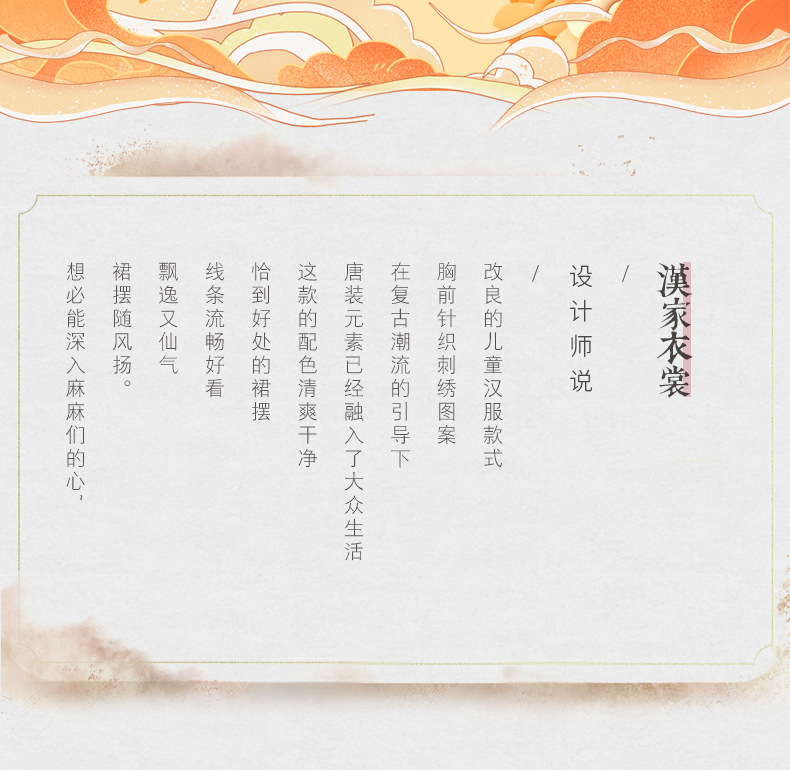 漢家衣裳
/
设计师说
/
改良的儿童汉服款式
胸前针织刺绣图案
在复古潮流的引导下
唐装元素已经融入了大众生活
这款的配色清爽干净
恰到好处的裙摆
线条流畅好看
飘逸又仙气
裙摆随风扬。
想必能深入麻麻们的心~